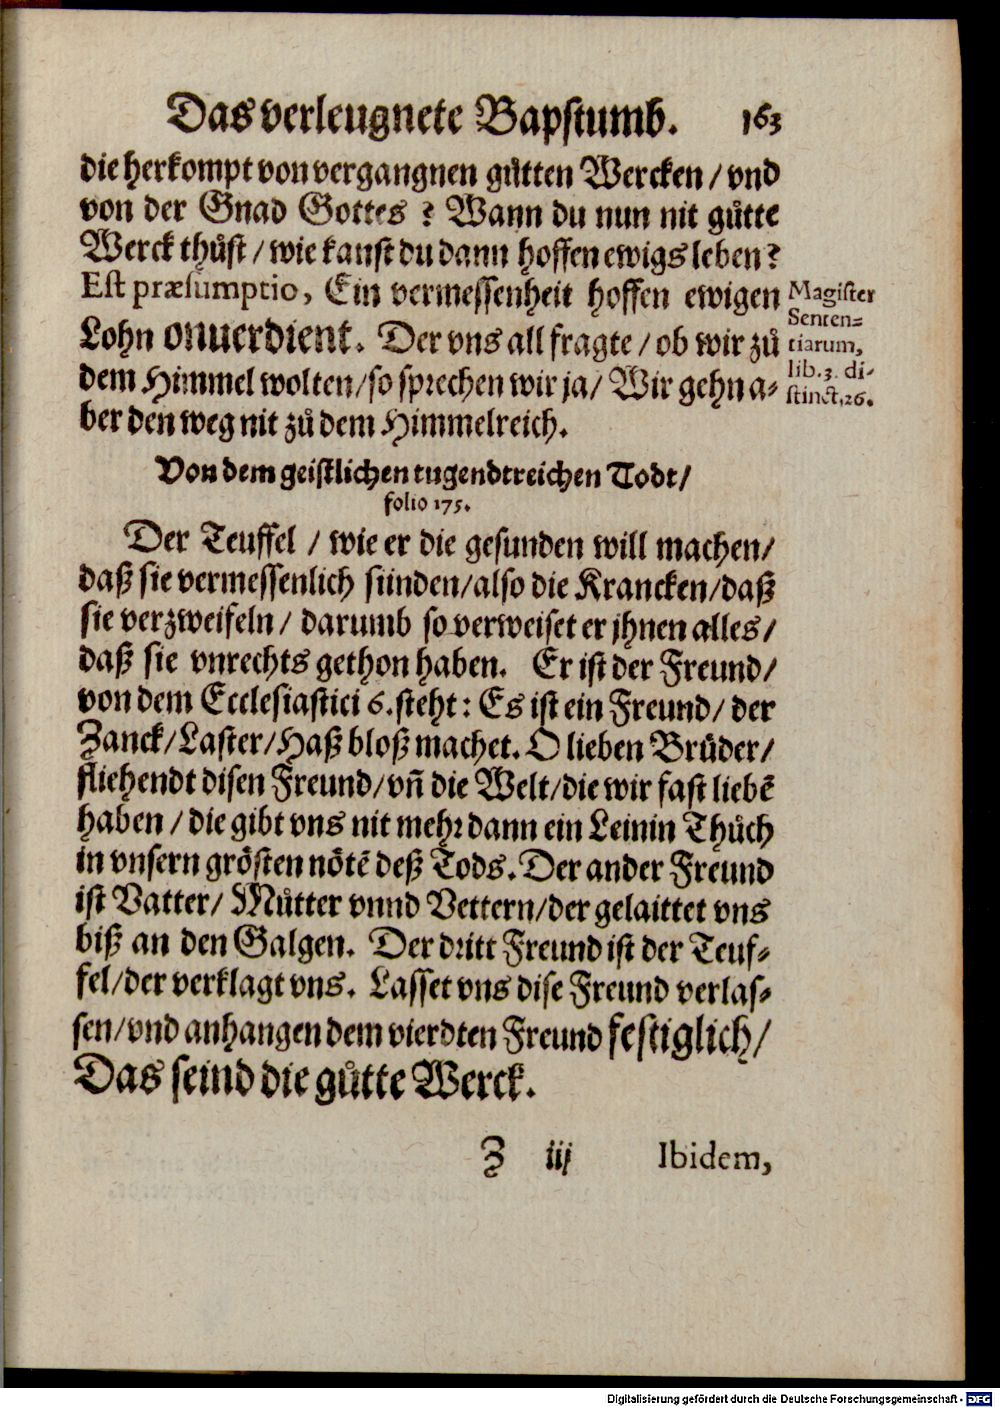 Das verleugnete Bapstumb. 163
die herkompt von vergangnen gůtten Wercken / vnd
von der Gnad Gottes ? Wann du nun nit gůtte
Werck thůst / wie kanst du dann hoffen ewigs leben?
Est præsumptio, Ein vermessenheit hoffen ewigen
Lohn onuerdient. Der vns all fragte / ob wir zů
dem Himmel wolten/ so sprechen wir ja/ Wir gehn a-
ber den weg nit zů dem Himmelreich.
Magister
Senten-
tiarum,
lib.3. di-
stinct,26.
Von dem geistlichen tugendtreichen Todt/
folio 175.
Der Teuffel / wie er die gesunden will machen/
daß sie vermessenlich sünden/also die Krancken/daß
sie verzweifeln / darumb so verweiset er jhnen alles/
daß sie vnrechts gethon haben. Er ist der Freund/
von dem Ecclesiastici 6. steht: Es ist ein Freund/ der
Zanck/Laster/Haß bloß machet. O lieben Brüder/
fliehendt disen Freund/vñ die Welt/die wir fast liebẽ
haben / die gibt vns nit mehr dann ein Leinin Thůch
in vnsern grösten nötẽ deß Tods. Der ander Freund
ist Vatter/ Můtter vnnd Vettern/der gelaittet vns
biß an den Galgen. Der dritt Freund ist der Teuf-
fel/der verklagt vns. Lasset vns dise Freund verlas-
sen/vnd anhangen dem vierdten Freund festiglich/
Das seind die gůtte Werck.
Z iij Ibidem,
Digitalisierung gefördert durch die Deutsche Forschungsgemeinschaft - DFG